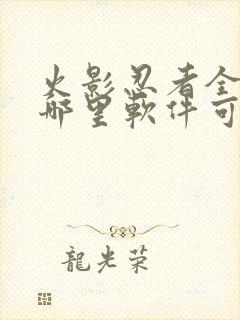 火影忍者全
哪里软件可
龍光荣